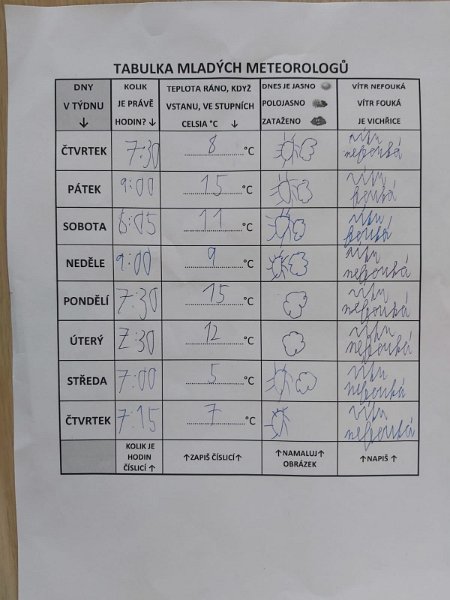 TABULKA MLADÝCH METEOROLOGŮ
DNY V TÝDNU ↓
KOLIK JE PRÁVĚ HODIN? ↓
TEPLOTA RÁNO, KDYŽ VSTANU, VE STUPNÍCH CELSIA °C ↓
DNES JE JASNO POLOJASNO ZATAŽENO
VÍTR NEFOUKÁ VÍTR FOUKÁ JE VICHŘICE
ČTVRTEK 7:30 8 °C vítr nefouká
PÁTEK 9:00 15 °C vítr fouká
SOBOTA 6:05 11 °C vítr fouká
NEDĚLE 9:00 9 °C vítr nefouká
PONDĚLÍ 7:30 15 °C vítr nefouká
ÚTERÝ 7:30 12 °C vítr nefouká
STŘEDA 7:00 5 °C vítr nefouká
ČTVRTEK 7:15 7 °C vítr nefouká
KOLIK JE HODIN ČÍSLICÍ ↑
↑ZAPIŠ ČÍSLICÍ↑
↑NAMALUJ↑ OBRÁZEK
↑NAPIŠ↑